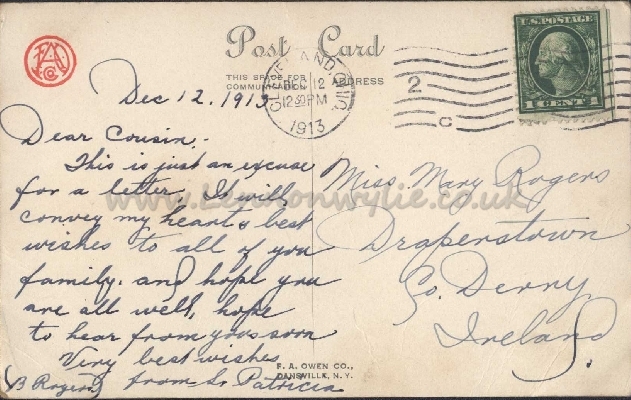 Post Card
THIS SPACE FOR COMMUNICATION
ADDRESS
CLEVELAND, OHIO
DEC 12
12 30 PM
1913
2
C
U.S. POSTAGE
1 CENT 1
Dec 12, 1913
Dear Cousin,
This is just an excuse
for a letter. It will
convey my heart's best
wishes to all of you
family. and hope you
are all well, hope
to hear from you soon
Very best wishes
from Sr Patricia
(B Rogers)
Miss Mary Rogers
Draperstown
Co. Derry
Ireland.
F. A. OWEN CO.,
DANSVILLE, N.Y.
www.bensonwylie.co.uk